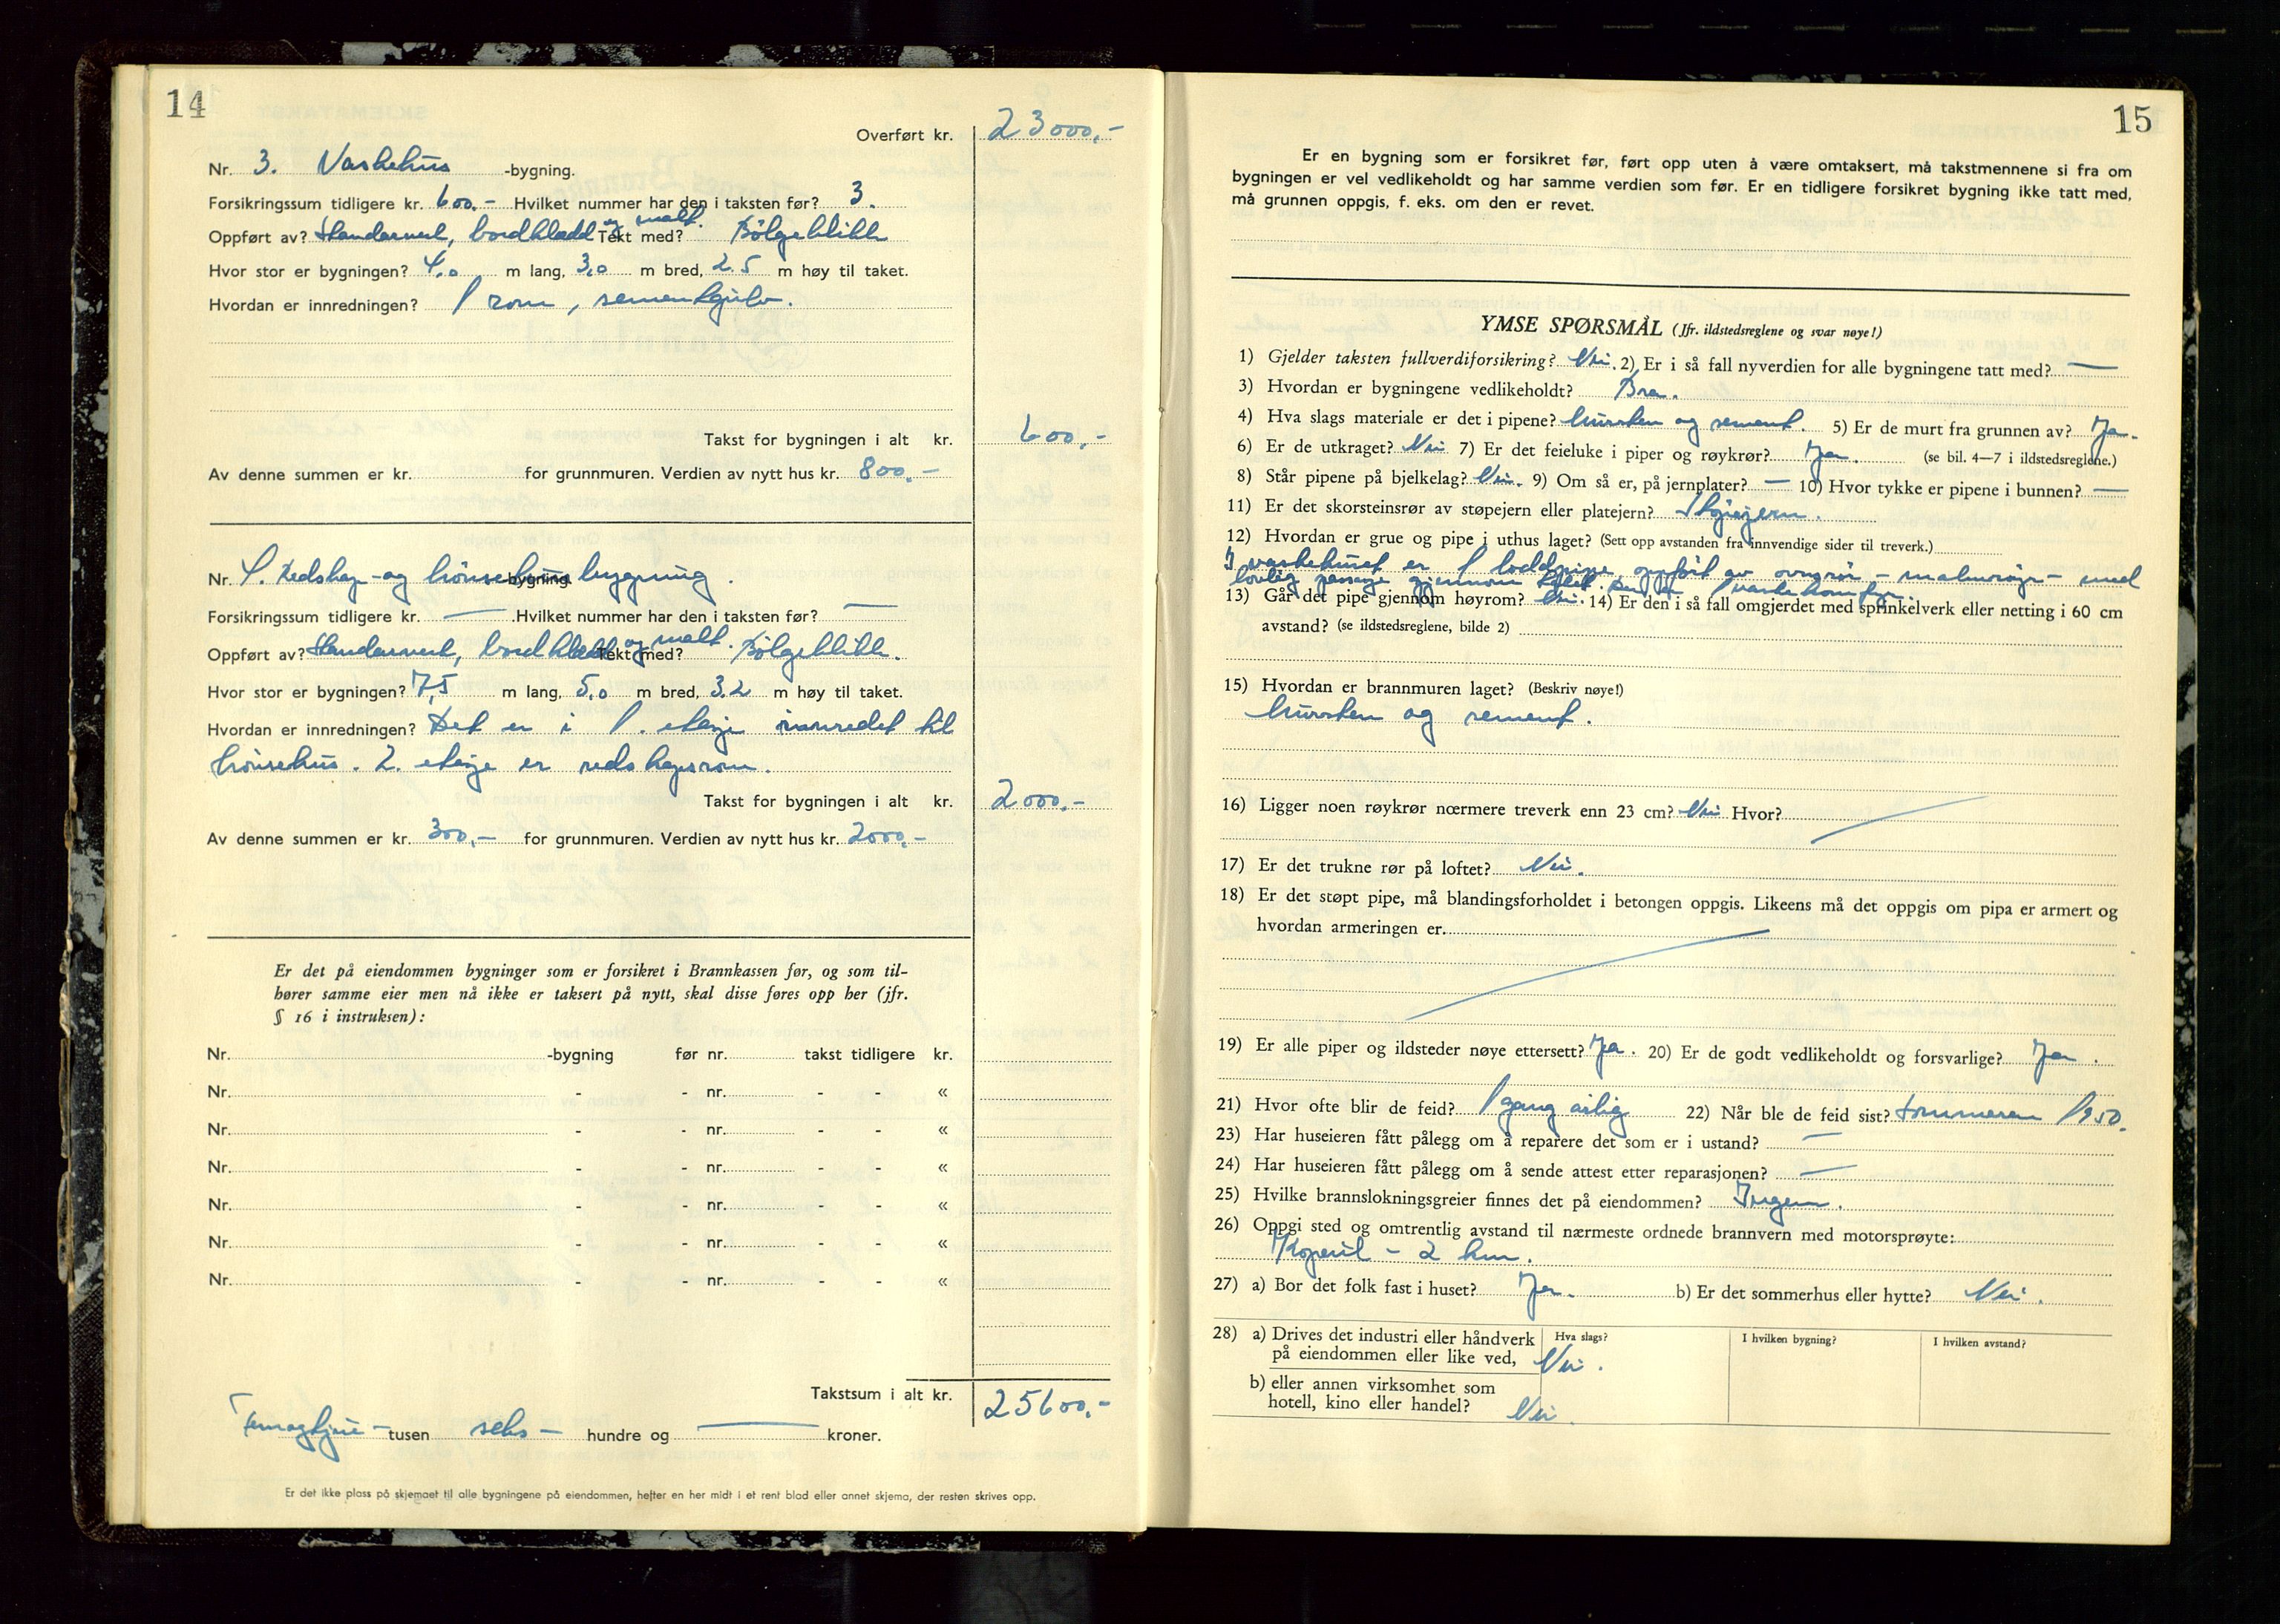 14
Overført kr. 23000,-
Nr. 3. Vaskehus -bygning.
Forsikringssum tidligere kr. 600,- Hvilket nummer har den i taksten før? 3.
Oppført av? Standarverk, bordkledd og malt. Tekt med? Bølgeblikk
Hvor stor er bygningen? 4,0 m lang, 3,0 m bred, 2.5 m høy til taket.
Hvordan er innredningen? 1 rom, sementgulv.
Takst for bygningen i alt kr. 600,-
Av denne summen er kr. for grunnmuren. Verdien av nytt hus kr. 800,-
Nr. 4. Redskap- og hønsehus bygning bygning.
Forsikringssum tidligere kr. — . Hvilket nummer har den i taksten før? —
Oppført av? Standarverk, bordkledd og malt. Tekt med? Bølgeblikk.
Hvor stor er bygningen? 7,5 m lang, 5,0 m bred, 3.2 m høy til taket.
Hvordan er innredningen? Det er i 1. etasje innredet til
hønsehus. 2. etasje er redskapsrom.
Takst for bygningen i alt kr. 2000,-
Av denne summen er kr. 300,- for grunnmuren. Verdien av nytt hus kr. 2000,-
Er det på eiendommen bygninger som er forsikret i Brannkassen før, og som til-
hører samme eier men nå ikke er taksert på nytt, skal disse føres opp her (jfr.
§ 16 i instruksen):
Nr. -bygning før nr. takst tidligere kr.
Nr. - - nr. - - «
Nr. - - nr. - - «
Nr. - - nr. - - «
Nr. - - nr. - - «
Nr. - - nr. - - «
Nr. - - nr. - - «
Takstsum i alt kr. 25600,-
Femogtjue - tusen seks - hundre og — kroner.
Er det ikke plass på skjemaet til alle bygningene på eiendommen, hefter en her midt i et rent blad eller annet skjema, der resten skrives opp.
15
Er en bygning som er forsikret før, ført opp uten å være omtaksert, må takstmennene si fra om
bygningen er vel vedlikeholdt og har samme verdien som før. Er en tidligere forsikret bygning ikke tatt med,
må grunnen oppgis, f. eks. om den er revet.
YMSE SPØRSMÅL (Jfr. ildstedsreglene og svar nøye!)
1) Gjelder taksten fullverdiforsikring? Nei. 2) Er i så fall nyverdien for alle bygningene tatt med? —
3) Hvordan er bygningene vedlikeholdt? Bra.
4) Hva slags materiale er det i pipene? Mursten og sement. 5) Er de murt fra grunnen av? Ja.
6) Er de utkraget? Nei 7) Er det feieluke i piper og røykrør? Ja. (se bil. 4—7 i ildstedsreglene.)
8) Står pipene på bjelkelag? Nei. 9) Om så er, på jernplater? — 10) Hvor tykke er pipene i bunnen? —
11) Er det skorsteinsrør av støpejern eller platejern? Støpejern.
12) Hvordan er grue og pipe i uthus laget? (Sett opp avstanden fra innvendige sider til treverk.)
I vaskehuset er 1 loddpipe oppført av ovnsrør - malmrør - med
lovlig passage gjennom taket.
13) Går det pipe gjennom høyrom? Nei. 14) Er den i så fall omgjerdet med sprinkelverk eller netting i 60 cm
avstand? (se ildstedsreglene, bilde 2)
15) Hvordan er brannmuren laget? (Beskriv nøye!)
Mursten og sement.
16) Ligger noen røykrør nærmere treverk enn 23 cm? Nei Hvor?
17) Er det trukne rør på loftet? Nei.
18) Er det støpt pipe, må blandingsforholdet i betongen oppgis. Likeens må det oppgis om pipa er armert og
hvordan armeringen er.
19) Er alle piper og ildsteder nøye ettersett? Ja. 20) Er de godt vedlikeholdt og forsvarlige? Ja.
21) Hvor ofte blir de feid? 1 gang årlig 22) Når ble de feid sist? Sommeren 1950.
23) Har huseieren fått pålegg om å reparere det som er i ustand? —
24) Har huseieren fått pålegg om å sende attest etter reparasjonen? —
25) Hvilke brannslokningsgreier finnes det på eiendommen? Ingen.
26) Oppgi sted og omtrentlig avstand til nærmeste ordnede brannvern med motorsprøyte:
Kopervik - 2 km.
27) a) Bor det folk fast i huset? Ja. b) Er det sommerhus eller hytte? Nei.
28) a) Drives det industri eller håndverk Hva slags? I hvilken bygning? I hvilken avstand?
på eiendommen eller like ved, Nei.
b) eller annen virksomhet som
hotell, kino eller handel? Nei.